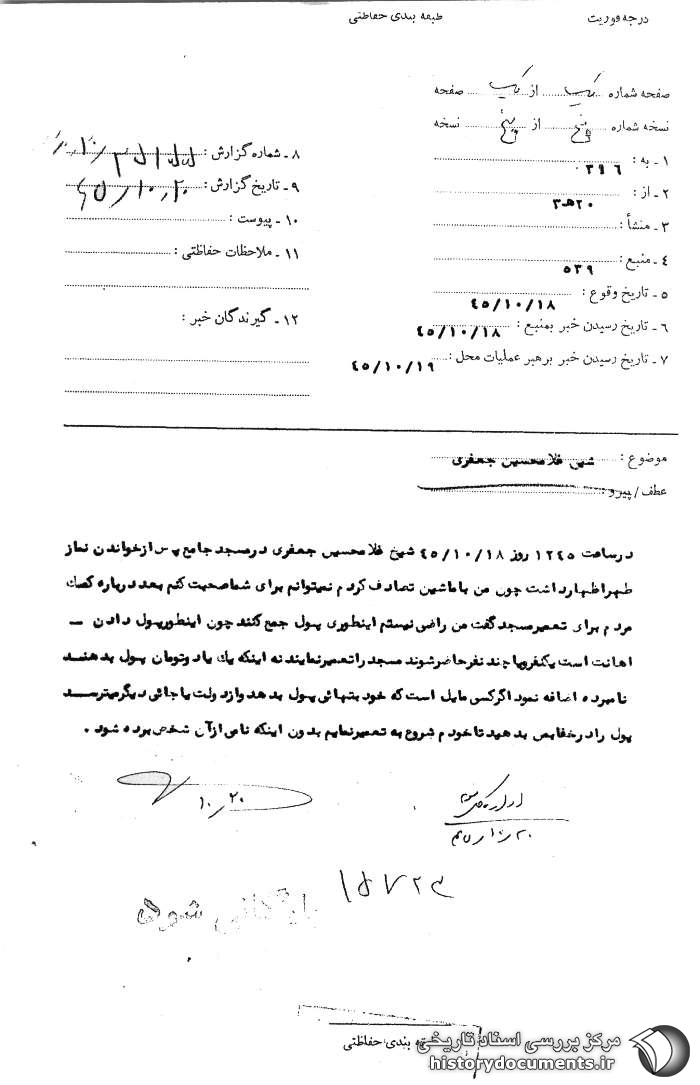 درجه فوریت
طبقه بندی حفاظتی
صفحه شماره یک از یک صفحه
نسخه شماره پنج از پنج نسخه
۱ ـ به : ۳۹٦
۲ ـ از : ۲۰هـ۳
۳ ـ منشأ :
٤ ـ منبع : ۵۳۹
۵ ـ تاریخ وقوع : ٤۵/۱۰/۱۸
٦ ـ تاریخ رسیدن خبر بمنبع : ٤۵/۱۰/۱۸
۷ ـ تاریخ رسیدن خبر برهبر عملیات محل : ٤۵/۱۰/۱۹
۸ ـ شماره گزارش :
۹ ـ تاریخ گزارش : ٤۵/۱۰/۲۰
۱۰ ـ پیوست :
۱۱ ـ ملاحظات حفاظتی :
۱۲ ـ گیرندگان خبر :
موضوع : شیخ غلامحسین جعفری
عطف / پیرو :
در ساعت ۱۲٤۵ روز ٤۵/۱۰/۱۸ شیخ غلامحسین جعفری در مسجد جامع پس از خواندن نماز
ظهر اظهار داشت چون من با ماشین تصادف کردم نمیتوانم برای شما صحبت کنم بعد درباره کمک
مردم برای تعمیر مسجد گفت من راضی نیستم اینطوری پول جمع کنند چون اینطور پول دادن ـ
اهانت است یکنفر ویا چند نفر حاضر شوند مسجد را تعمیر نمایند نه اینکه یك یا دو تومان پول بدهند
نامبرده اضافه نمود اگر کسی مایل است که خود بتنهائی پول بدهد و از دولت یا جائی دیگر میترسد
پول را در خفا بمن بدهید تا خودم شروع به تعمیر نمایم بدون اینکه نامی از آن شخص برده شود .
۱۰/۲۰
اداره کل سوم
۲۰/۱۰/٤۵
۱۵۷۲۳
بایگانی شود
طبقه بندی حفاظتی
مرکز بررسی اسناد تاریخی
historydocuments.ir